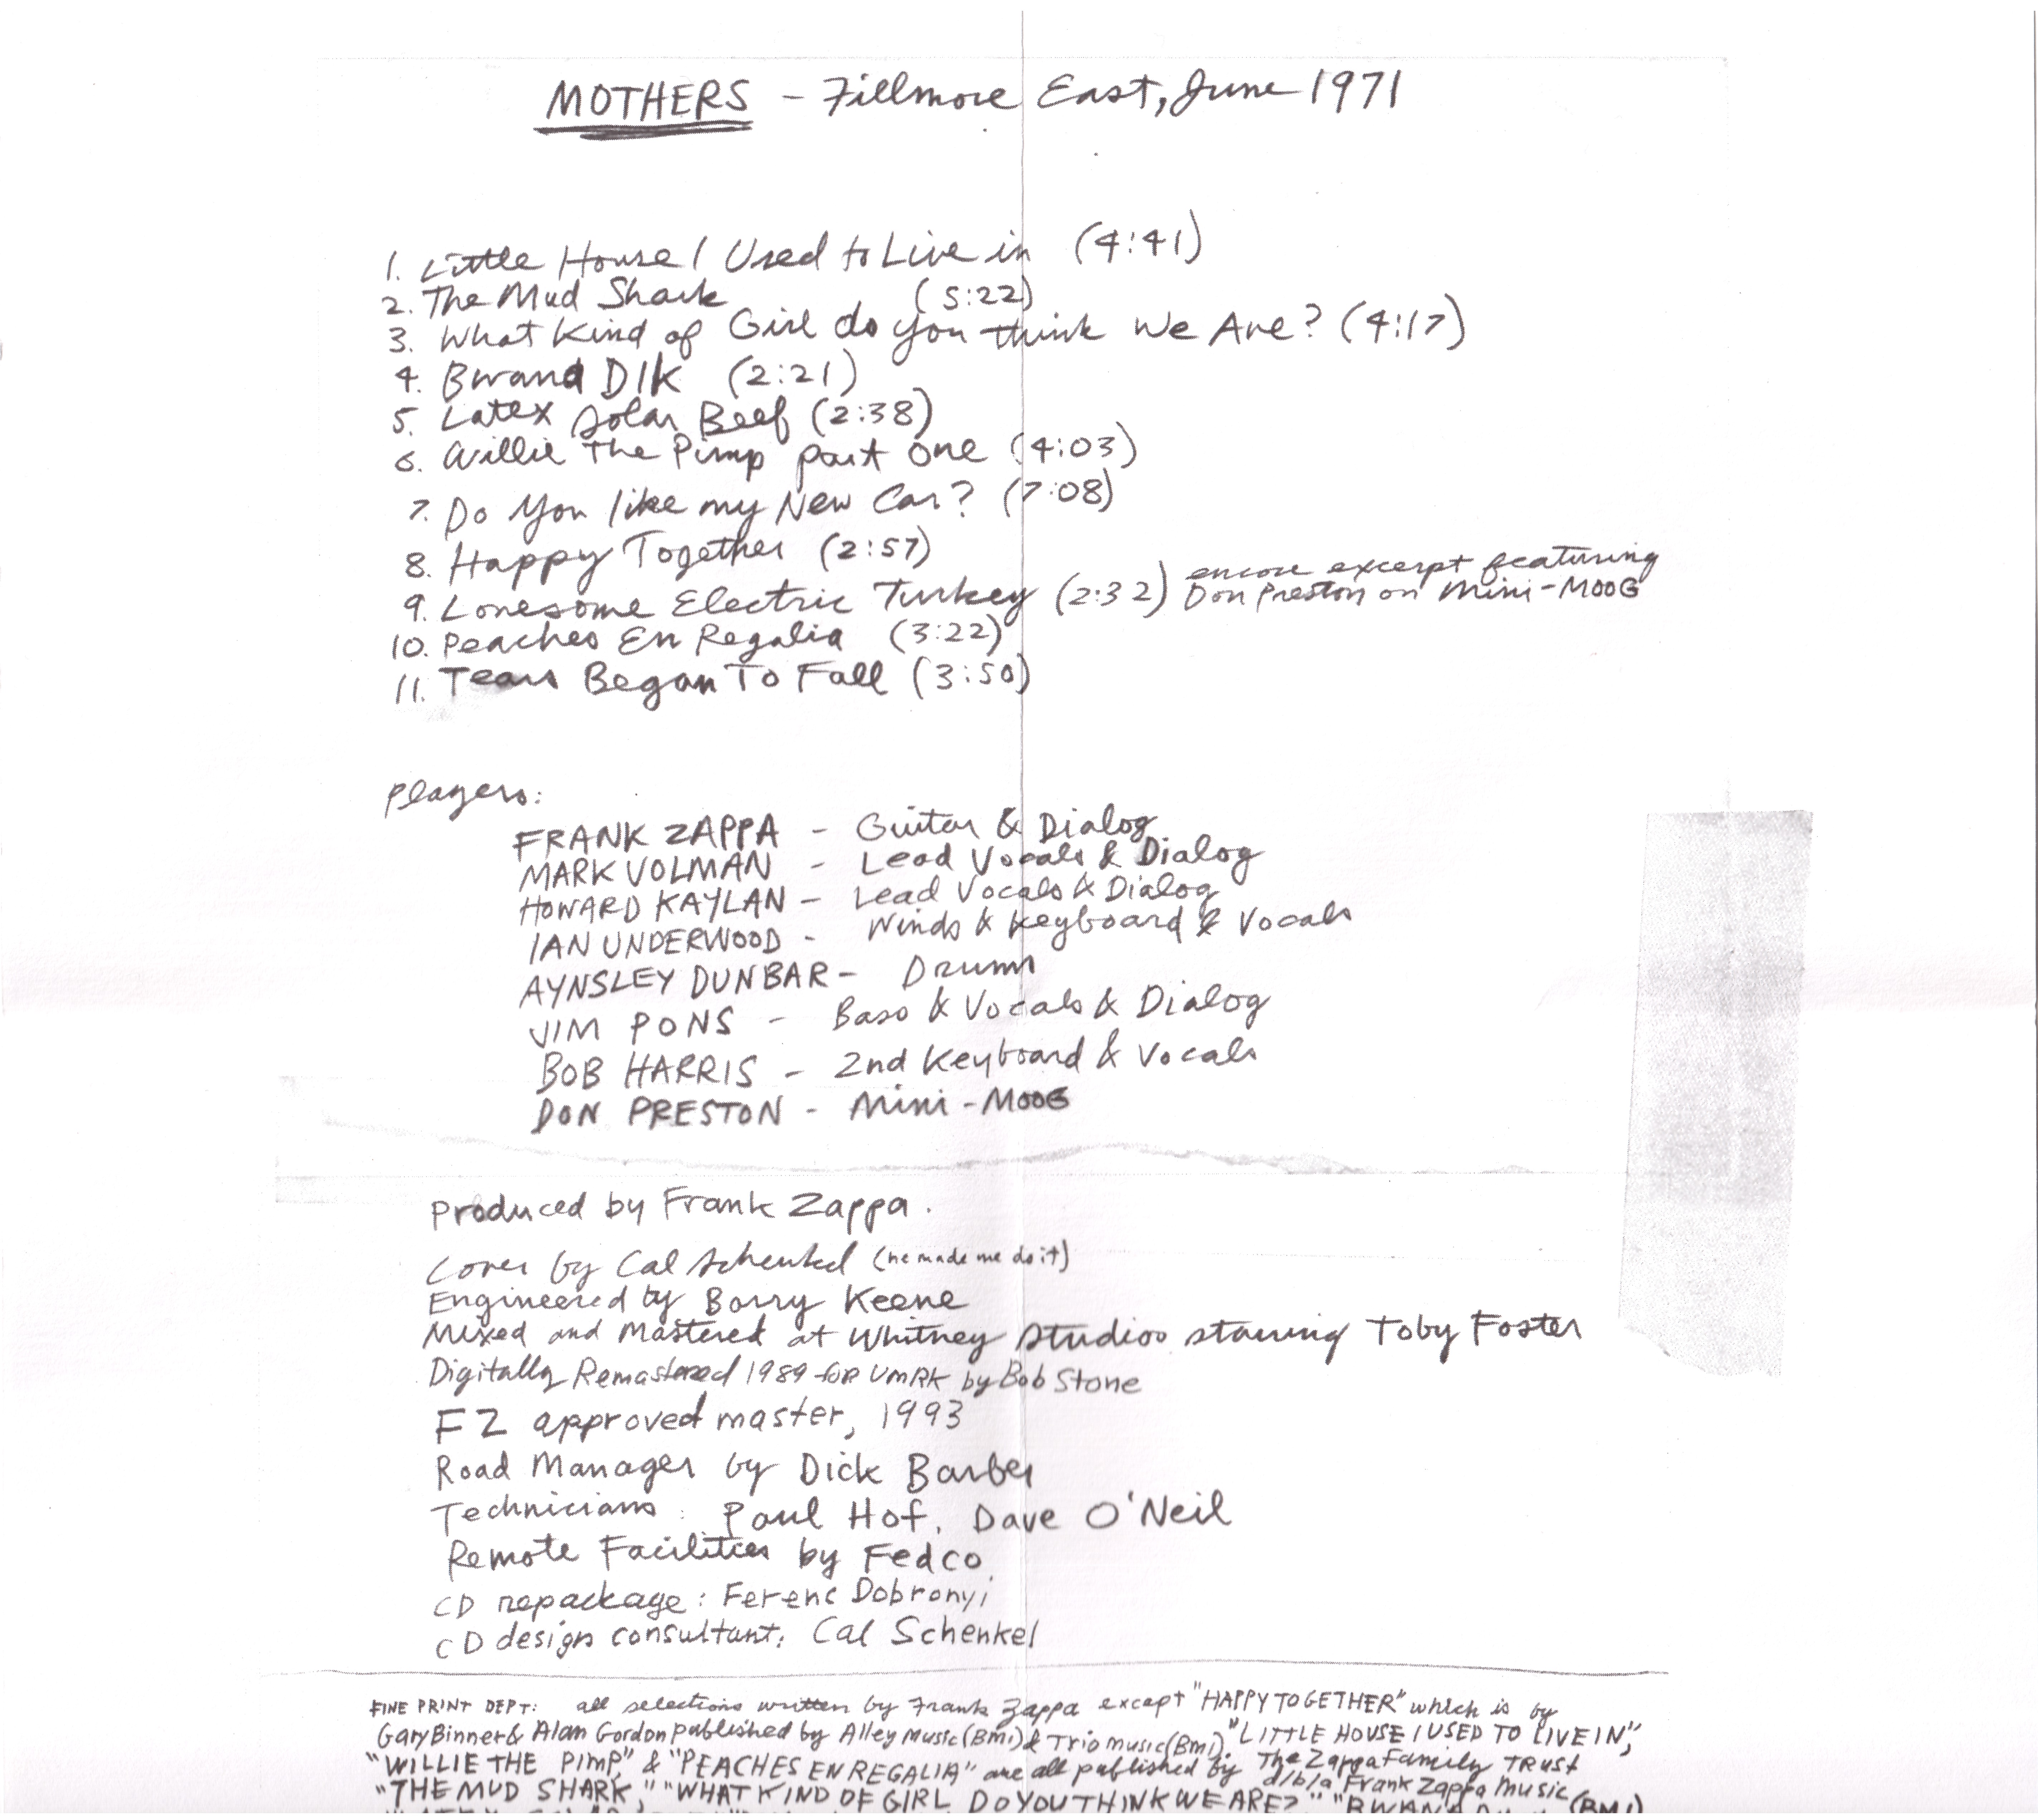 MOTHERS - Fillmore East, June 1971
1. Little House I Used to Live in (4:41)
2. The Mud Shark (5:22)
3. What Kind of Girl do you think We Are? (4:17)
4. Bwana DIK (2:21)
5. Latex Solar Beef (2:38)
6. Willie The Pimp part one (4:03)
7. Do You like my New Car? (7:08)
8. Happy Together (2:57)
9. Lonesome Electric Turkey (2:32) encore excerpt featuring
Don Preston on Mini-MOOG
10. Peaches En Regalia (3:22)
11. Tears Began To Fall (3:50)
players:
FRANK ZAPPA - Guitar & Dialog
MARK VOLMAN - Lead Vocals & Dialog
HOWARD KAYLAN - Lead Vocals & Dialog
IAN UNDERWOOD - Winds & Keyboard & Vocals
AYNSLEY DUNBAR - Drums
JIM PONS - Bass & Vocals & Dialog
BOB HARRIS - 2nd Keyboard & Vocals
DON PRESTON - Mini-MOOG
produced by Frank Zappa.
Cover by Cal Schenkel (he made me do it)
Engineered by Barry Keene
Mixed and Mastered at Whitney Studios starring Toby Foster
Digitally Remastered 1989 for UMRK by Bob Stone
FZ approved master, 1993
Road Manager by Dick Barber
Technicians: Paul Hof, Dave O'Neil
Remote Facilities by Fedco
CD repackage: Ferenc Dobronyi
CD design consultant: Cal Schenkel
FINE PRINT DEPT: all selections written by Frank Zappa except "HAPPY TOGETHER" which is by
Gary Binner & Alan Gordon published by Alley Music (BMI) & Trio music (BMI). "LITTLE HOUSE I USED TO LIVE IN,"
"WILLIE THE PIMP," & "PEACHES EN REGALIA" are all published by The Zappa Family TRUST
d/b/a Frank Zappa Music (BMI)
"THE MUD SHARK," "WHAT KIND OF GIRL DO YOU THINK WE ARE?" "BWANA